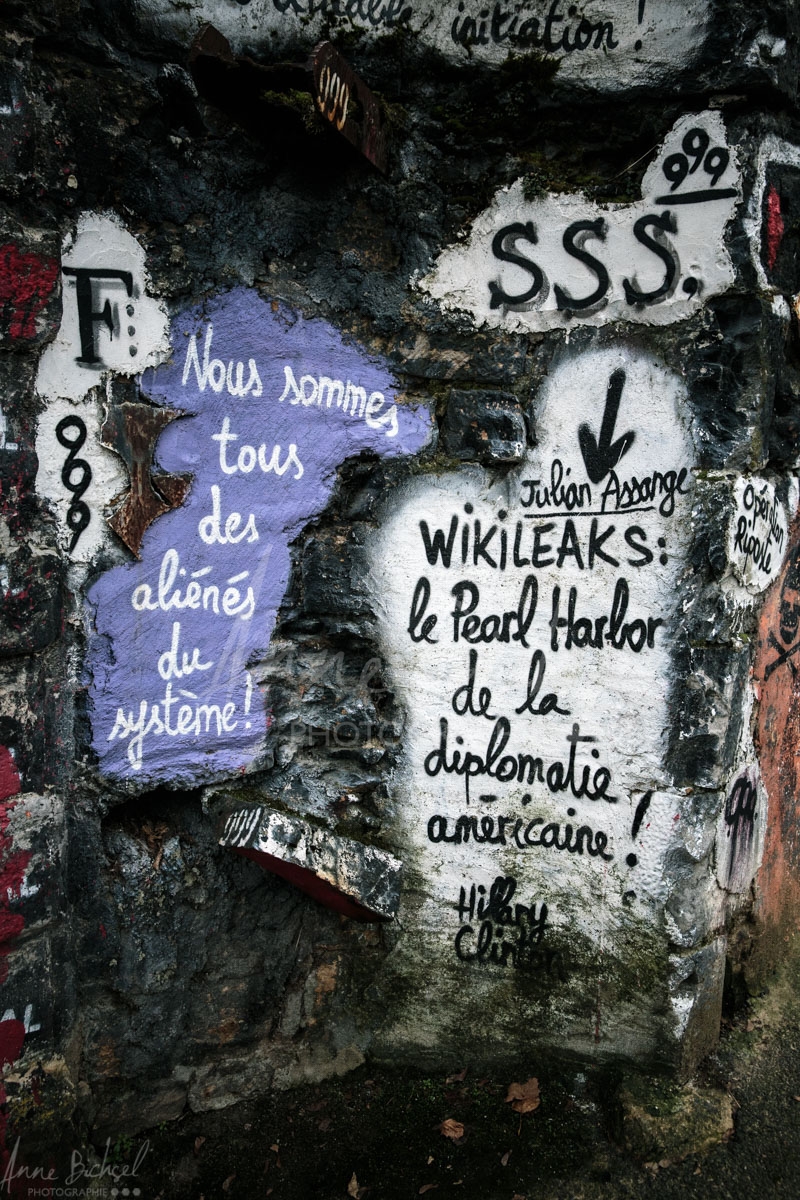 initiation !
999
999
SSS.
F:
999
Nous sommes
tous
des
aliénés
du
système !
Julian Assange
WIKILEAKS:
le Pearl Harbor
de la
diplomatie
américaine !
Hillary
Clinton
Opération
Riposte
999
Anne Bichsel
PHOTOGRAPHIE